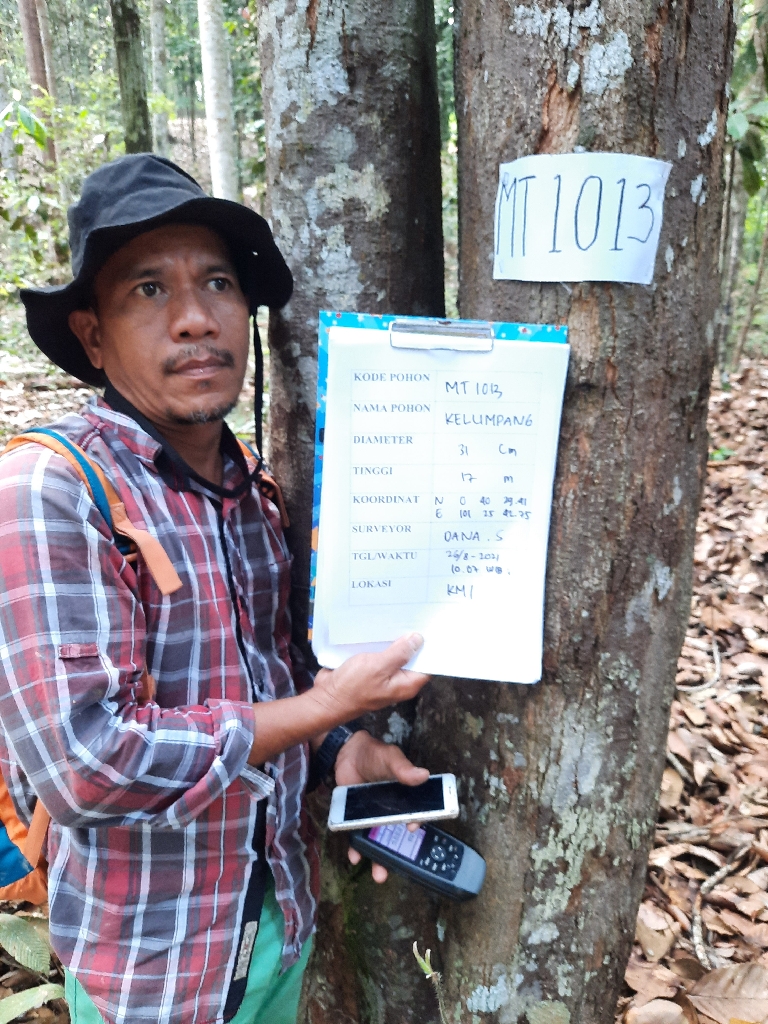 MT 1013
KODE POHON MT 1013
NAMA POHON KELUMPANG
DIAMETER 31 Cm
TINGGI 17 m
KOORDINAT N 0 40 29.41
E 101 25 42.75
SURVEYOR DANA. S
TGL/WAKTU 26/8-2021
10.07 WIB.
LOKASI KM1